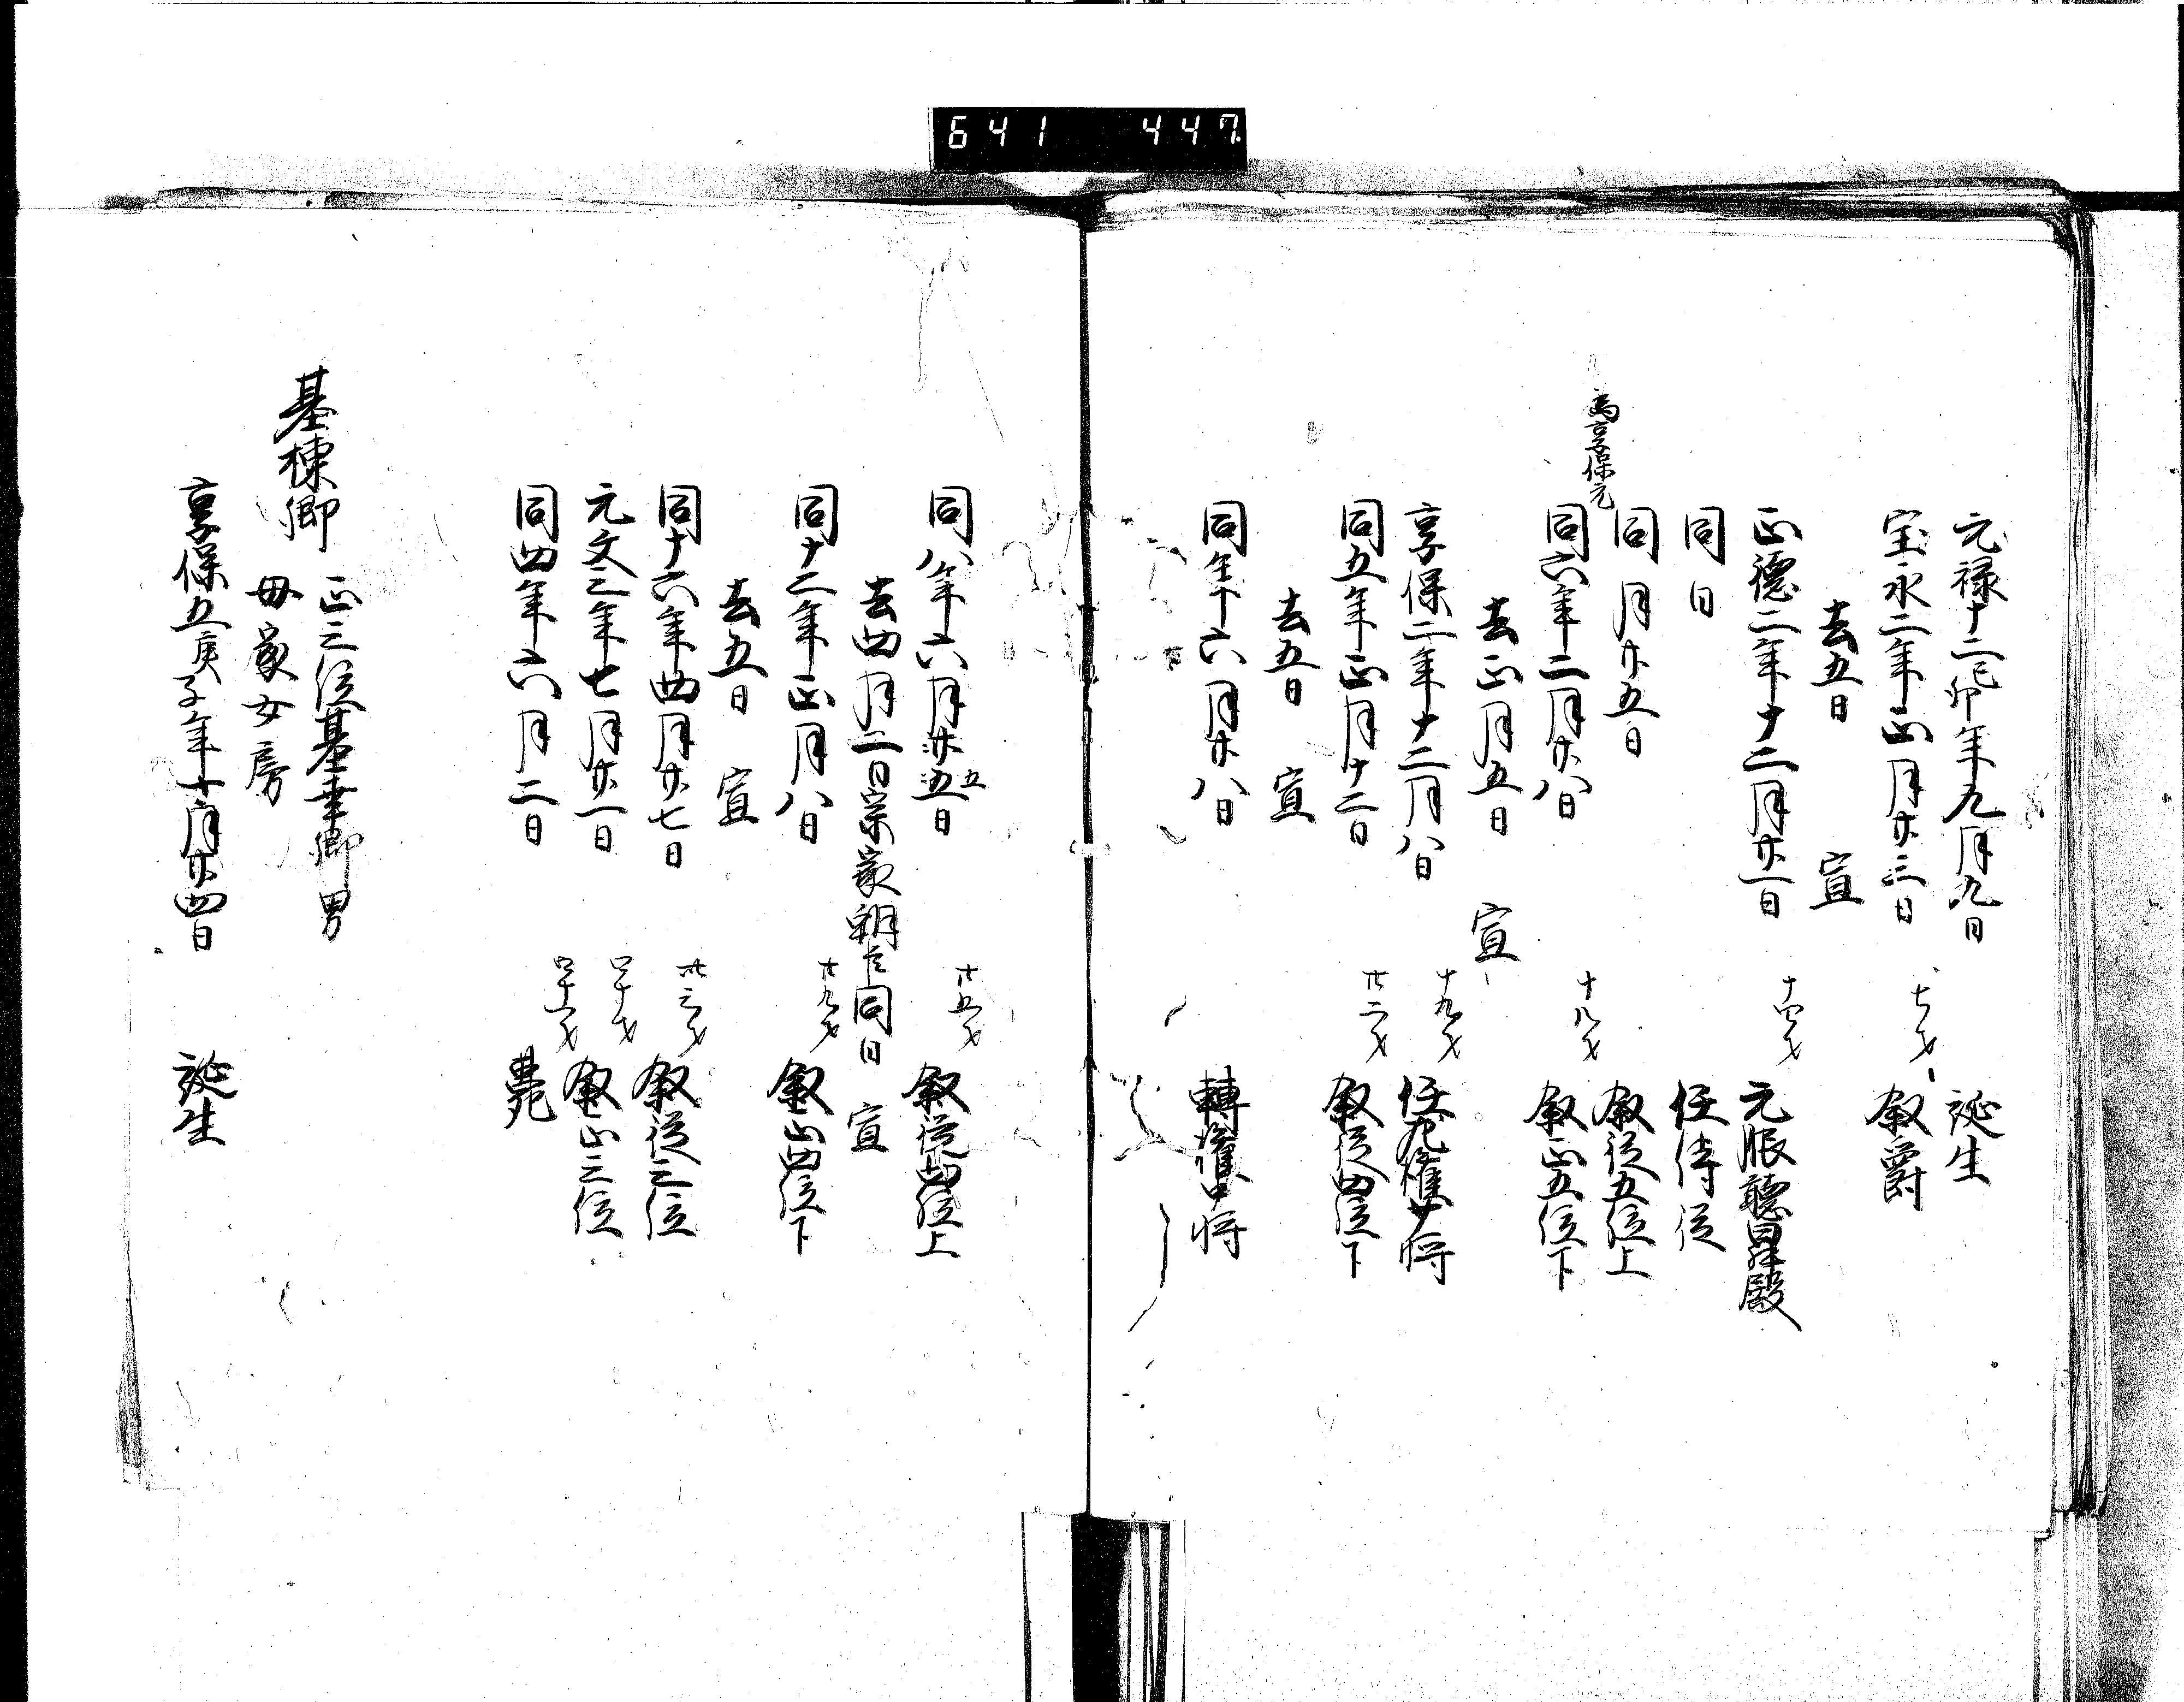 641 447
元禄十二己卯年九月九日 誕生
宝永二年正月廿三日 七才 叙爵
去五日 宣
正徳二年十二月廿一日 十四才 元服聴昇殿
同日 任侍従
同 月廿五日 叙従五位上
為享保元
同六年二月廿八日 十八才 叙正五位下
去正月五日 宣
享保二年十二月八日 十九才 任左権少将
同五年正月十二日 廿二才 叙従四位下
去五日 宣
同年十六月廿八日 轉権中将
同八年六月廿五日 廿五才 叙従四位上
去四月二日宗家朝臣同日 宣
同十二年正月八日 廿九才 叙正四位下
去五日 宣
同十六年四月廿七日 卅三才 叙従三位
元文三年七月廿一日 四十才 叙正三位
同四年六月二日 四十一才 薨
基棟卿 正三位基幸卿男
母家女房
享保五庚子年十月廿四日 誕生